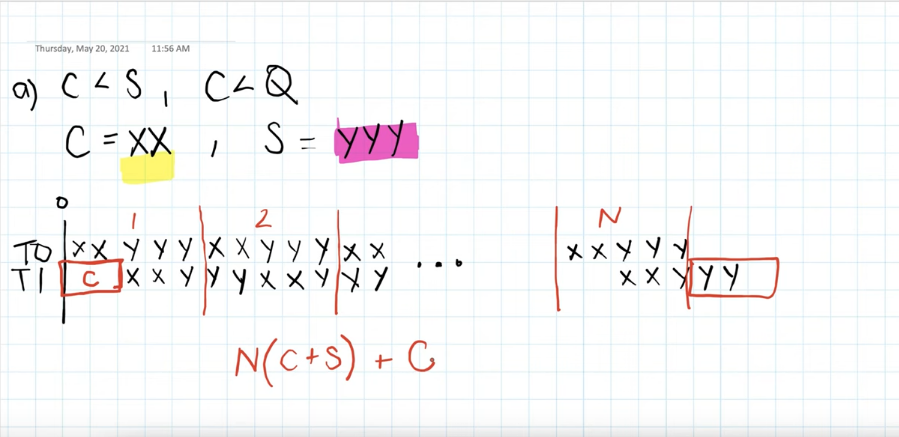 Thursday, May 20, 2021 11:56 AM
a) C < S, C < Q
C = XX, S = YYY
0
1 2 N
T0 XXYYYXXYYYXX ... XXYYY
T1 C XXYYYXXYYY XXYYY
N(C+S) + C